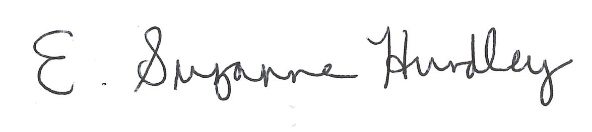 E. Suzanne Hundley